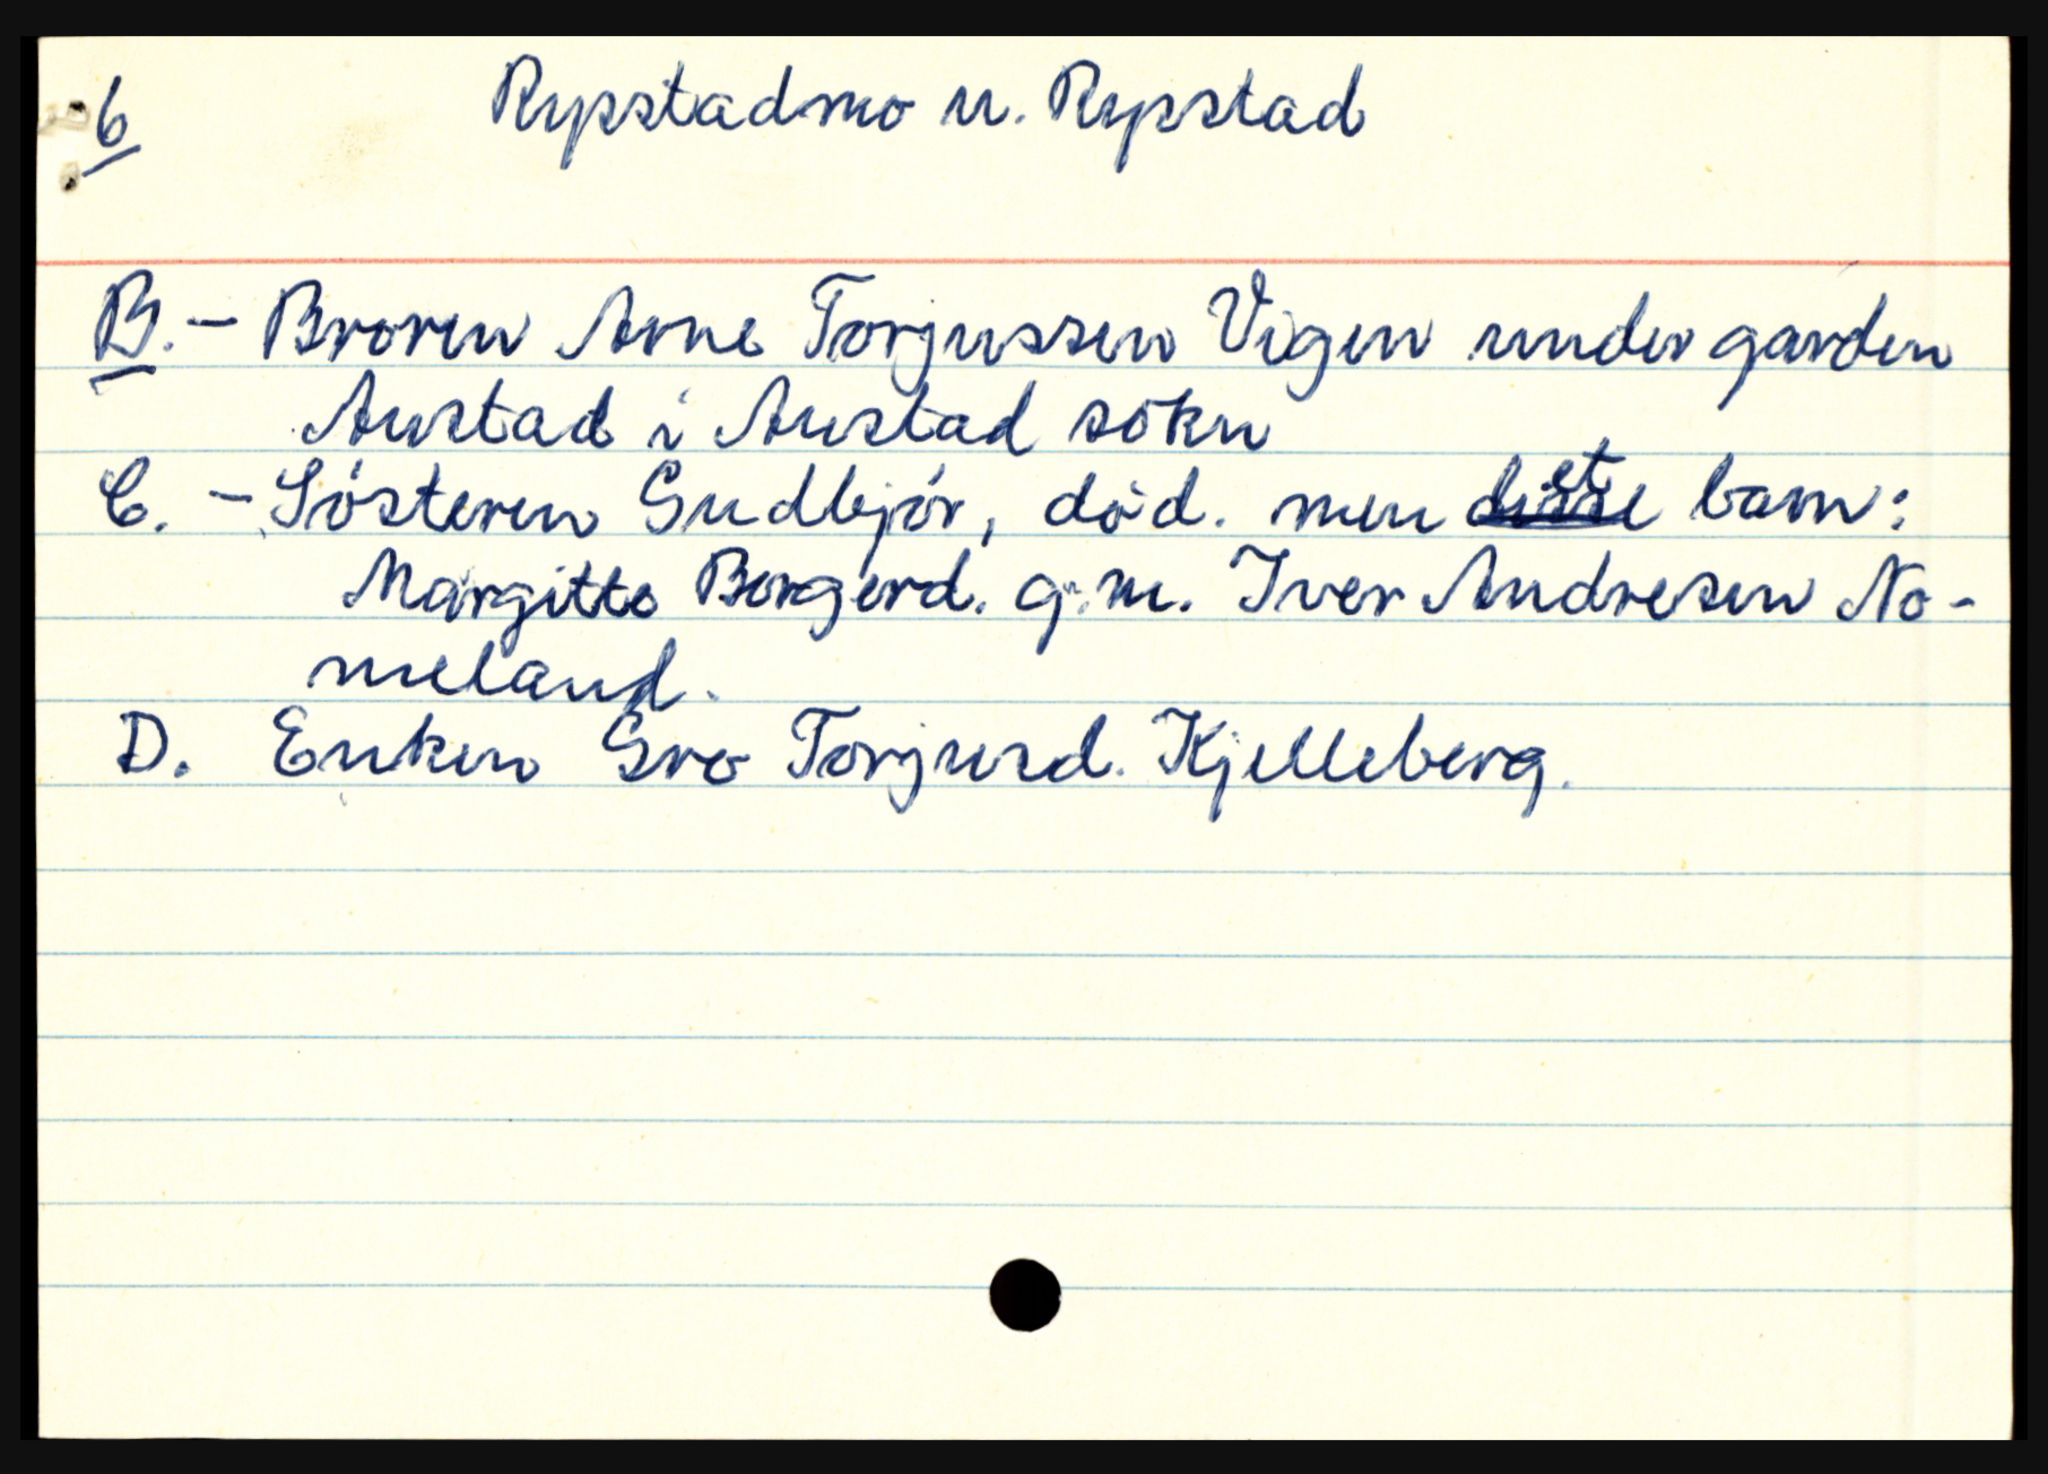 6 Rypstadmo u. Rypstad
B. - Broren Arne Torjussen Vigen under garden
Austad i Austad sökn
C. - Sösteren Gudbjör, död. men et disse barn:
Margitte Borgerd. g.m. Iver Andresen No-
meland.
D. Enken Gro Torjusd. Kjelleberg.